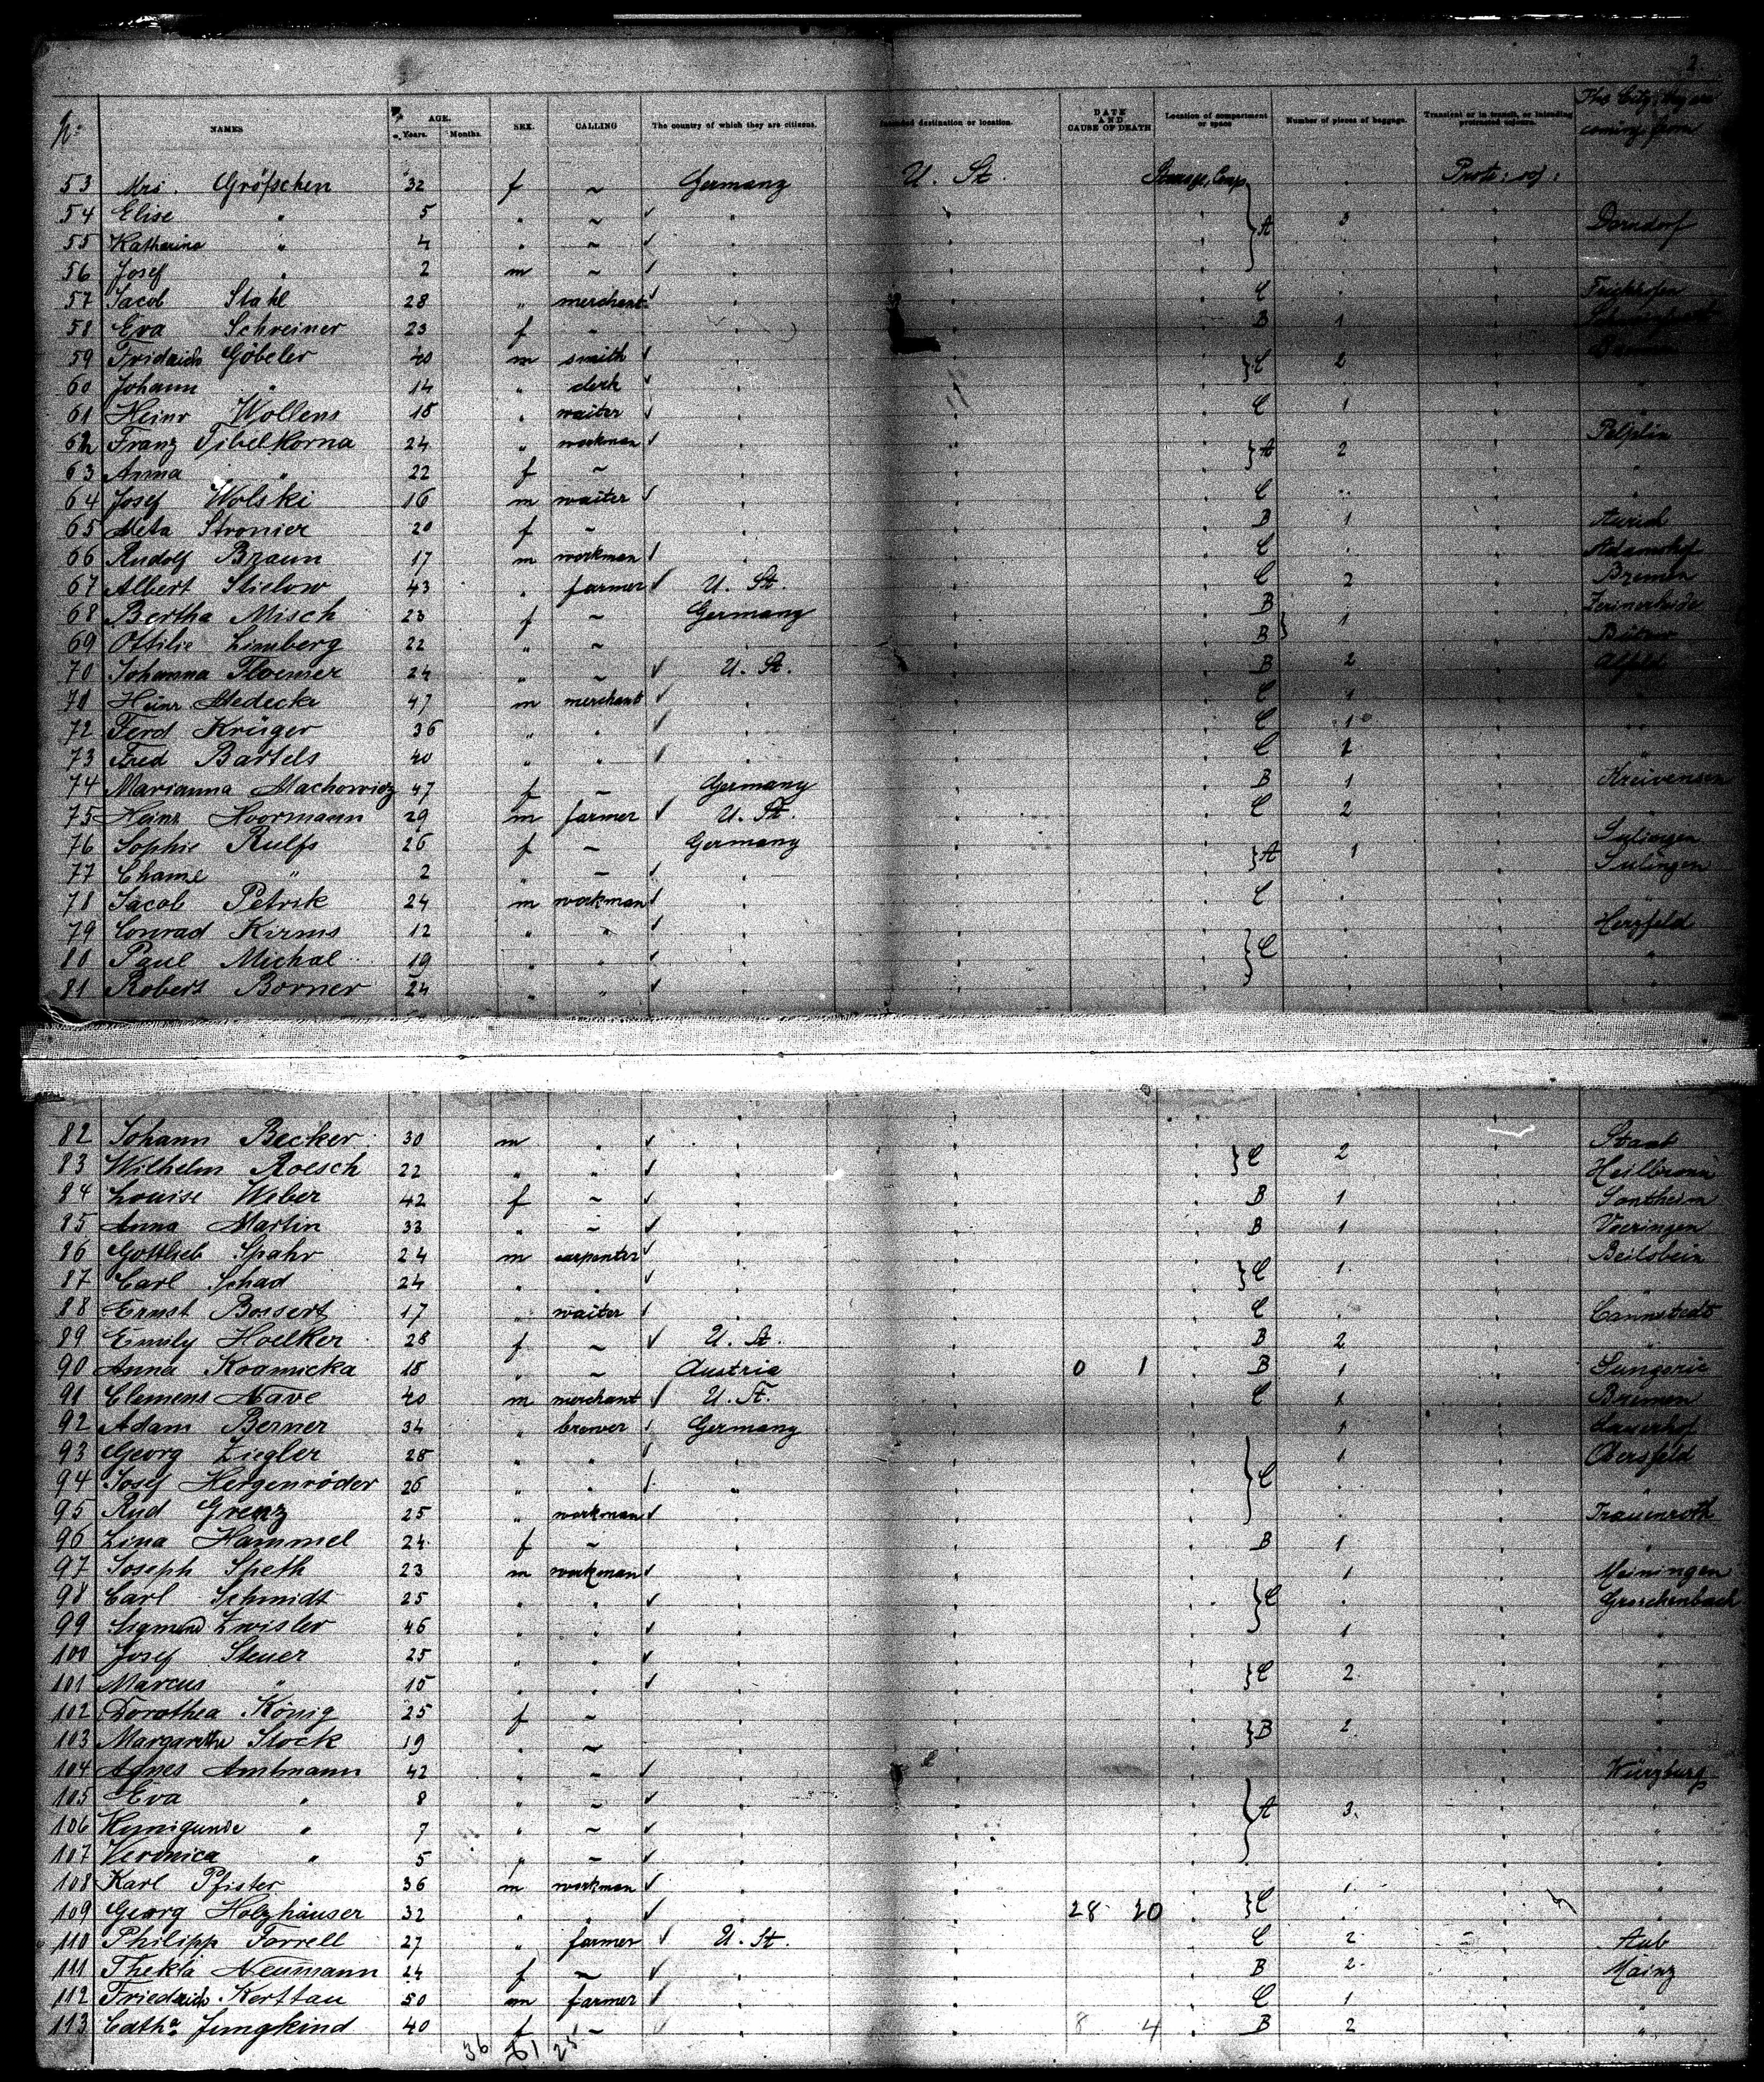 2.
No NAMES AGE. Years. Months. SEX. CALLING The country of which they are citizens. Intended destination or location. DATE AND CAUSE OF DEATH Location of compartment or space Number of pieces of baggage. Transient or in transit, or intending protracted sojourn. The City they are coming from
53 Mrs. Gröfschen 32 f ~ Germany U. St. Steerage, Comp. Protr: soj:
54 Elise " 5 " ~ ✓ " " A 3 " Dorndorf
55 Katharina " 4 " ~ ✓ " "
56 Josef " 2 m ~ ✓ " "
57 Jacob Stahl 28 " merchant ✓ " " C " Frickhofen
58 Eva Schreiner 23 f " " " B 1 "
59 Fridrich Göbeler 40 m smith ✓ " " C 2 " Bremen
60 Johann " 14 " clerk ✓ " " "
61 Heinr Wollens 18 " waiter ✓ " " C 1 " "
62 Franz Tibelkorna 24 " workman ✓ " " A 2 " Pelplin
63 Anna " 22 f ~ " " "
64 Josef Wolski 16 m waiter ✓ " " C " " "
65 Meta Stromer 20 f ~ " " B 1 " Aurich
66 Rudolf Braun 17 m workman ✓ " " C " " Adamshof
67 Albert Stielow 43 " farmer ✓ U. St. " C 2 " Bremen
68 Bertha Misch 23 f ~ Germany " B 1 "
69 Ottilie Limberg 22 " ~ " " B " Bütow
70 Johanna Ploemer 24 " ~ ✓ U. St. " B 2 " Alfeld
71 Heinr Medecke 47 m merchant ✓ " " C 1 " "
72 Ferd Krüger 36 " " ✓ " " C 1 " "
73 Fred Bartels 40 " " ✓ " " C 1 " "
74 Marianna Machowicz 47 f ~ Germany " B 1 " Kreivensen
75 Heinr Hoormann 29 m farmer ✓ U. St. " C 2 "
76 Sophie Rulfs 26 f ~ Germany " A 1 " Sulingen
77 Chame " 2 " ~ ✓ " " " Sulingen
78 Jacob Petrik 24 m workman ✓ " " C " "
79 Conrad Kirms 12 " " ✓ " " C " " Herzfeld
80 Paul Michal 19 " " ✓ " " " " "
81 Robert Borner 24 " " ✓ " " " " "
82 Johann Becker 30 m " ✓ " " C 2 " Staab
83 Wilhelm Roesch 22 " " ✓ " " " Heilbronn
84 Louise Weber 42 f ~ ✓ " " B 1 " Sontheim
85 Anna Martin 33 " ~ ✓ " " B 1 " Voeringen
86 Gottlieb Spahr 24 m carpenter ✓ " " C 1 " Beilsbein
87 Carl Schad 24 " " ✓ " " "
88 Ernst Bossert 17 " waiter ✓ " " C " " Cannstedt
89 Emily Hoelker 28 f ~ ✓ U. St. " B 2 " "
90 Anna Koamicka 18 " ~ Austria " 0 1 B 1 "
91 Clemens Nave 40 m merchant ✓ U. St. " C 1 " Bremen
92 Adam Berner 34 " brewer ✓ Germany " 1 "
93 Georg Ziegler 28 " " ✓ " " C 1 " Obersfeld
94 Josef Hergenröder 26 " " ✓ " " " " "
95 Rud Grenz 25 " workman ✓ " " " " Frauenroth
96 Lina Hammel 24 f ~ " " B 1 " "
97 Joseph Speth 23 m workman ✓ " " 1 " Meiningen
98 Carl Schmidt 25 " " ✓ " " C " " Groschenbach
99 Sigmund Zwisler 46 " " ✓ " " 1 " "
100 Josef Steuer 25 " " ✓ " " C 2 " "
101 Marcus " 15 " " ✓ " " " "
102 Dorothea König 25 f ~ " " B 2 " "
103 Margaretha Stock 19 " ~ " " " "
104 Agnes Amtmann 42 " ~ ✓ " " " Würzburg
105 Eva " 8 " ~ ✓ " " A 3 " "
106 Kunigunde " 7 " ~ ✓ " " " "
107 Veronica " 5 " ~ ✓ " " " "
108 Karl Pfister 36 m workman ✓ " " C 1 " "
109 Georg Holzhäuser 32 " " ✓ " " 28 20 " " "
110 Philipp Forrell 27 " farmer ✓ U. St. " C 2 " Aub
111 Thekla Neumann 24 f ~ ✓ " " B 2 " Mainz
112 Friedrich Kerttau 50 m farmer ✓ " " C 1 " "
113 Catha Jungkind 40 f ~ ✓ " " 8 4 B 2 " "
36 61 25